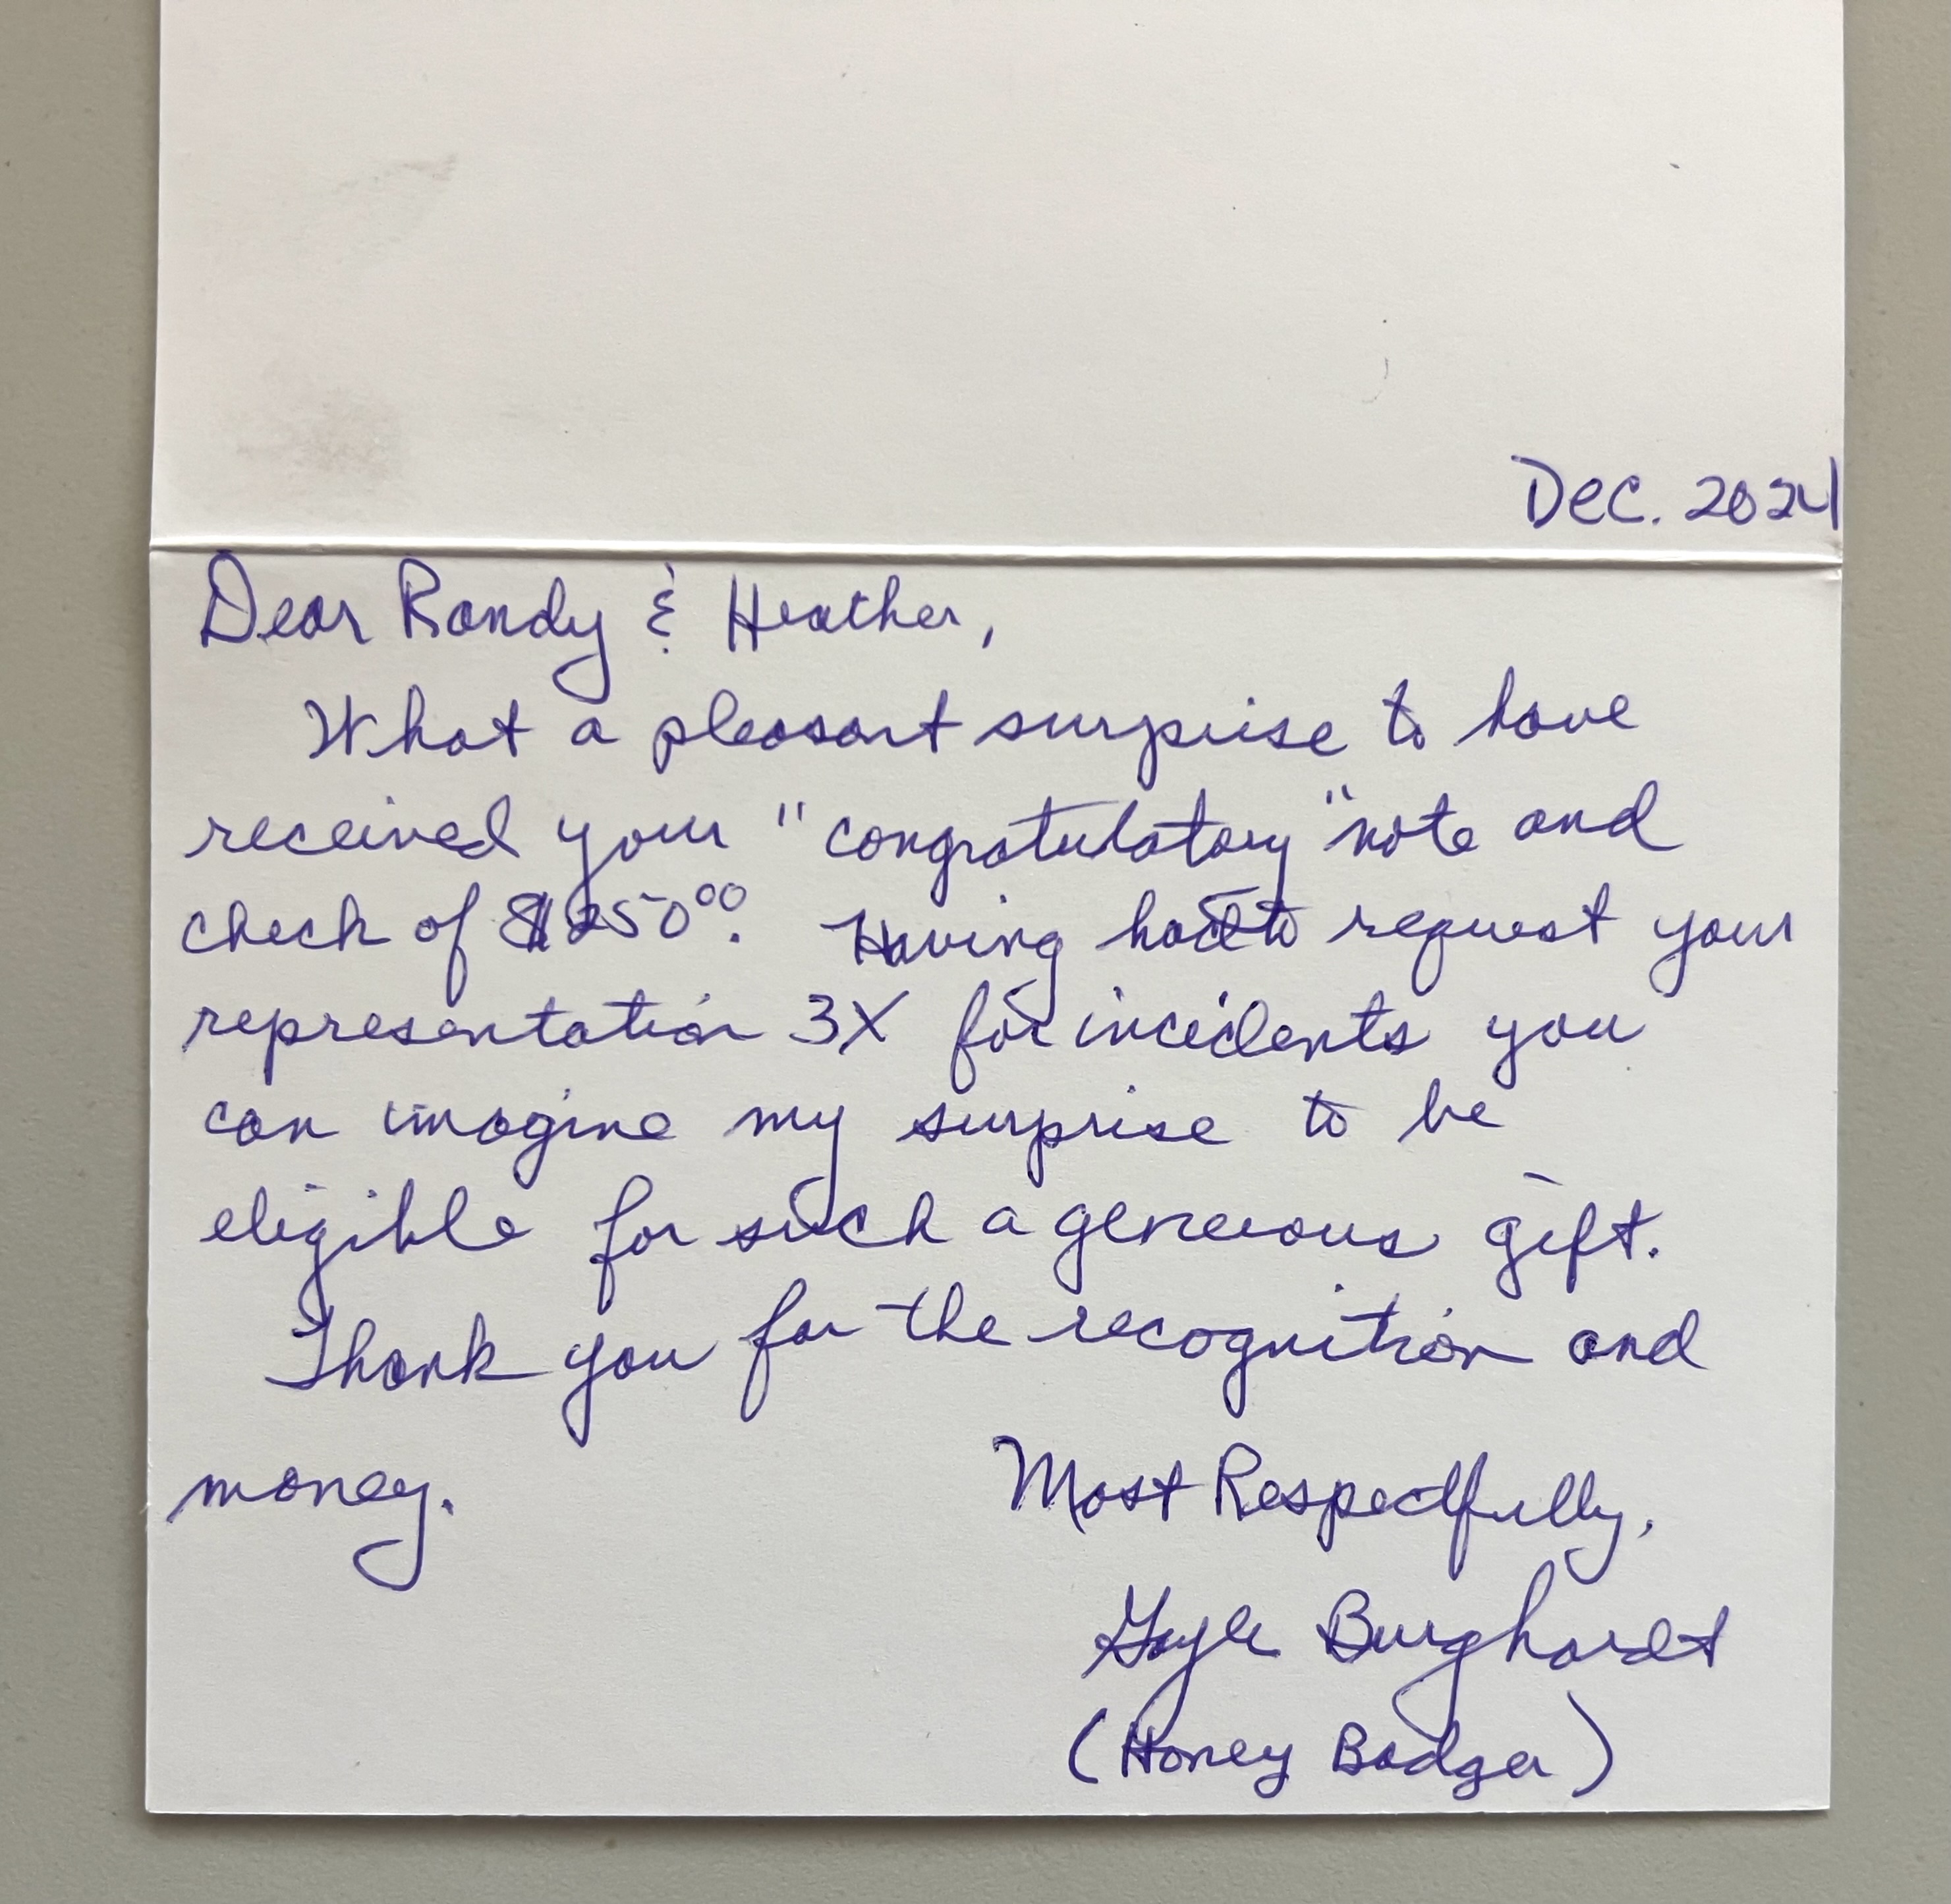 Dec. 2024
Dear Randy & Heather,
What a pleasant surprise to have
received your "congratulatory" note and
check of $250⁰⁰. Having had to request your
representation 3X for incidents you
can imagine my surprise to be
eligible for such a generous gift.
Thank you for the recognition and
money.
Most Respectfully,
Gayle Burghardt
(Honey Badger)